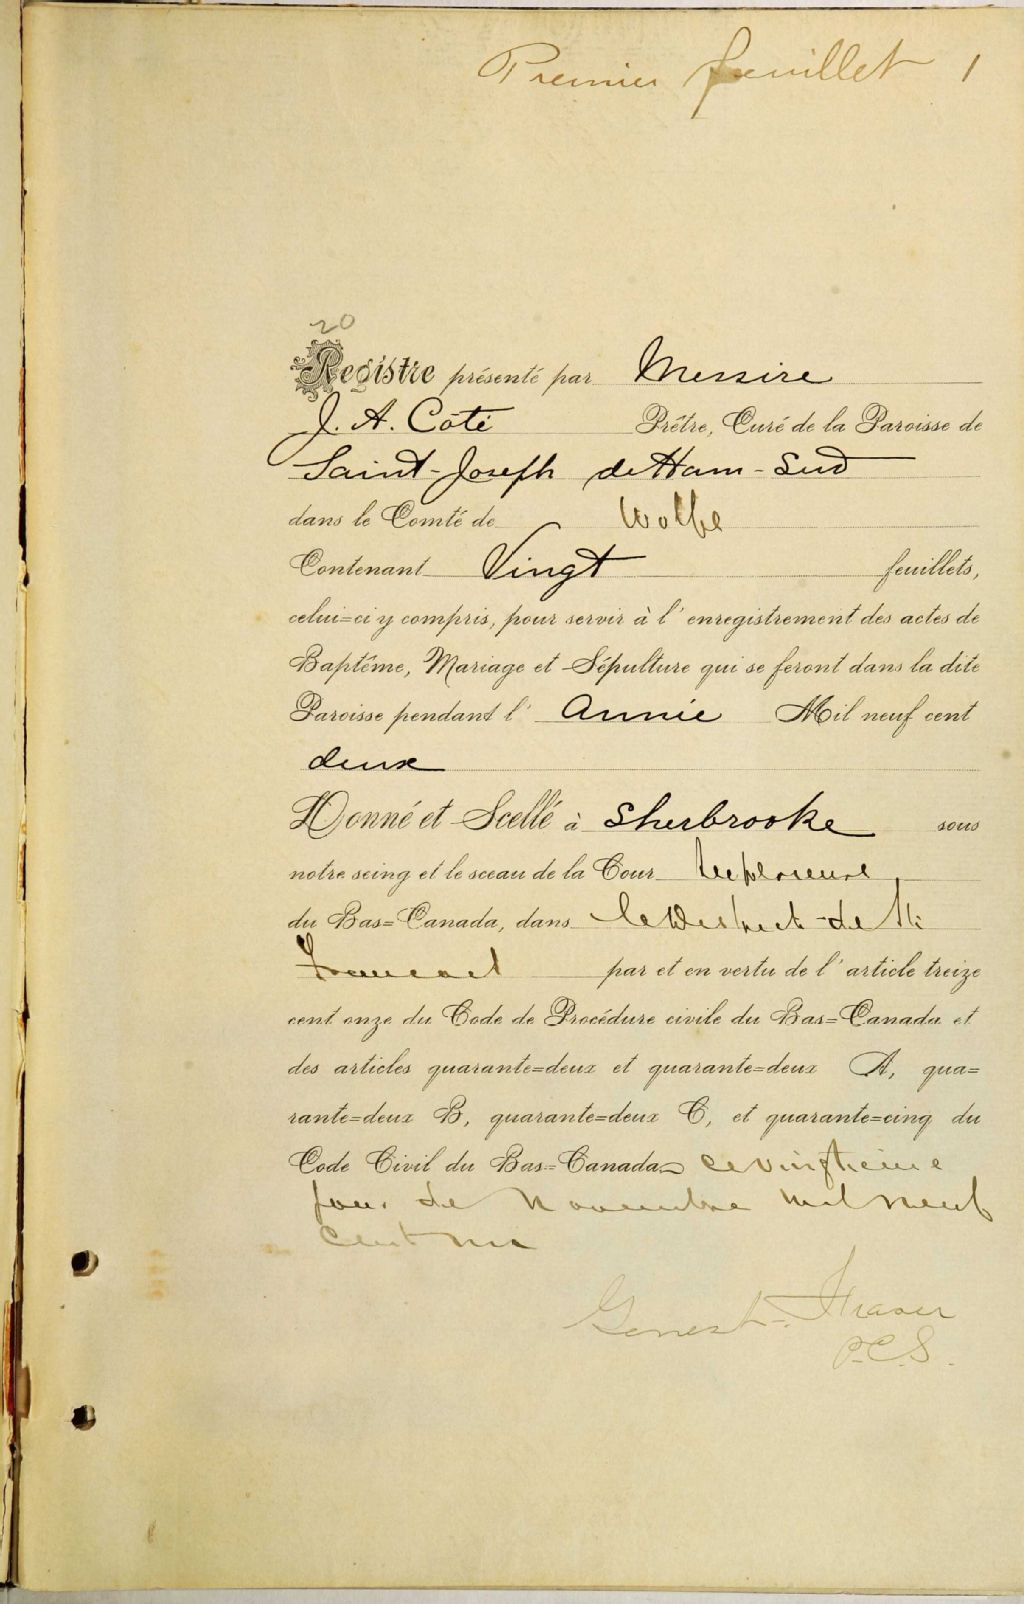 Premier feuillet 1
20
Registre présenté par Messire
J. A. Coté Prêtre, Curé de la Paroisse de
Saint-Joseph de Ham-Sud
dans le Comté de Wolfe
Contenant Vingt feuillets,
celui=ci y compris, pour servir à l'enregistrement des actes de
Baptême, Mariage et Sépulture qui se feront dans la dite
Paroisse pendant l'Année Mil neuf cent
deux
Donné et Scellé à Sherbrooke sous
notre seing et le sceau de la Cour Supérieure
du Bas=Canada, dans le District de St
François par et en vertu de l'article treize
cent onze du Code de Procédure civile du Bas=Canada et
des articles quarante=deux et quarante=deux A, qua=
rante=deux B, quarante=deux C, et quarante=cinq du
Code Civil du Bas=Canada ce vingtième
jour de Novembre mil neuf
cent un
Genest Fraser
P.C.S.